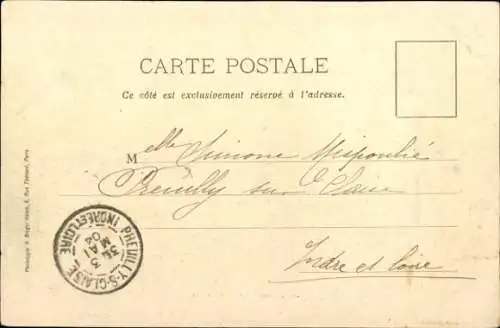 CARTE POSTALE
Ce côté est exclusivement réservé à l'adresse.
Melle Simone
Preuilly sur Claise
Indre et Loire
PREUILLY-S-CLAISE
3E
3
MAI
04
INDRE-ET-LOIRE